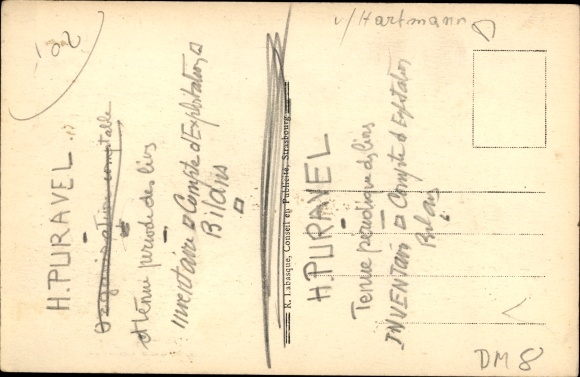 102
H. PURAVEL
Organisation comptable
et tenue periode des livs
inventaire □ Compte d'Exploitation □
Bilans
□
R. Labasque, Conseil en Publicité, Strasbourg
v/Hartmann
H. PURAVEL
Tenue periodique des livs
INVENTAIRE □ Compte d'Exploitation
Bilans
DM 8